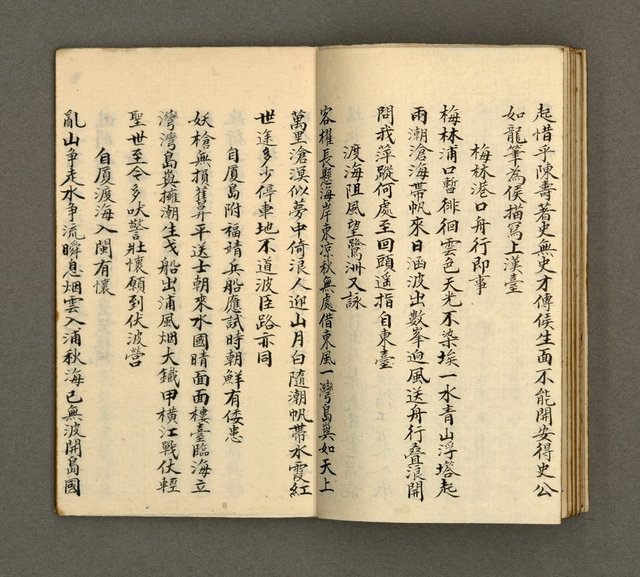 起惜乎陳壽著史無史才傳侯生面不能開安得史公
如龍筆為侯描寫上漢臺
梅林港口舟行即事
梅林浦口暫徘徊雲色天光不染埃一水青山浮塔起
兩潮滄海帶帆來日涵波出數峯迥風送舟行叠浪開
問我萍蹤何處至回頭遥指自東臺
渡海阻風望鷺洲又詠
客櫂長懸海岸東凉秋無處借東風一灣島嶼如天上
萬里滄溟似夢中倚浪人迎山月白隨潮帆帶水霞紅
世途多少停車地不道波臣路亦同
自厦島附福靖兵船應試時朝鮮有倭患
妖槍無損舊昇平送士朝來水國晴面面樓臺臨海立
灣灣島嶼擁潮生戈船出浦風烟大鐵甲橫江戰伏輕
聖世至今多吠警壯懷願到伏波營
自厦渡海入閩有懷
亂山争走水争流瞬息烟雲入浦秋海已無波開島國